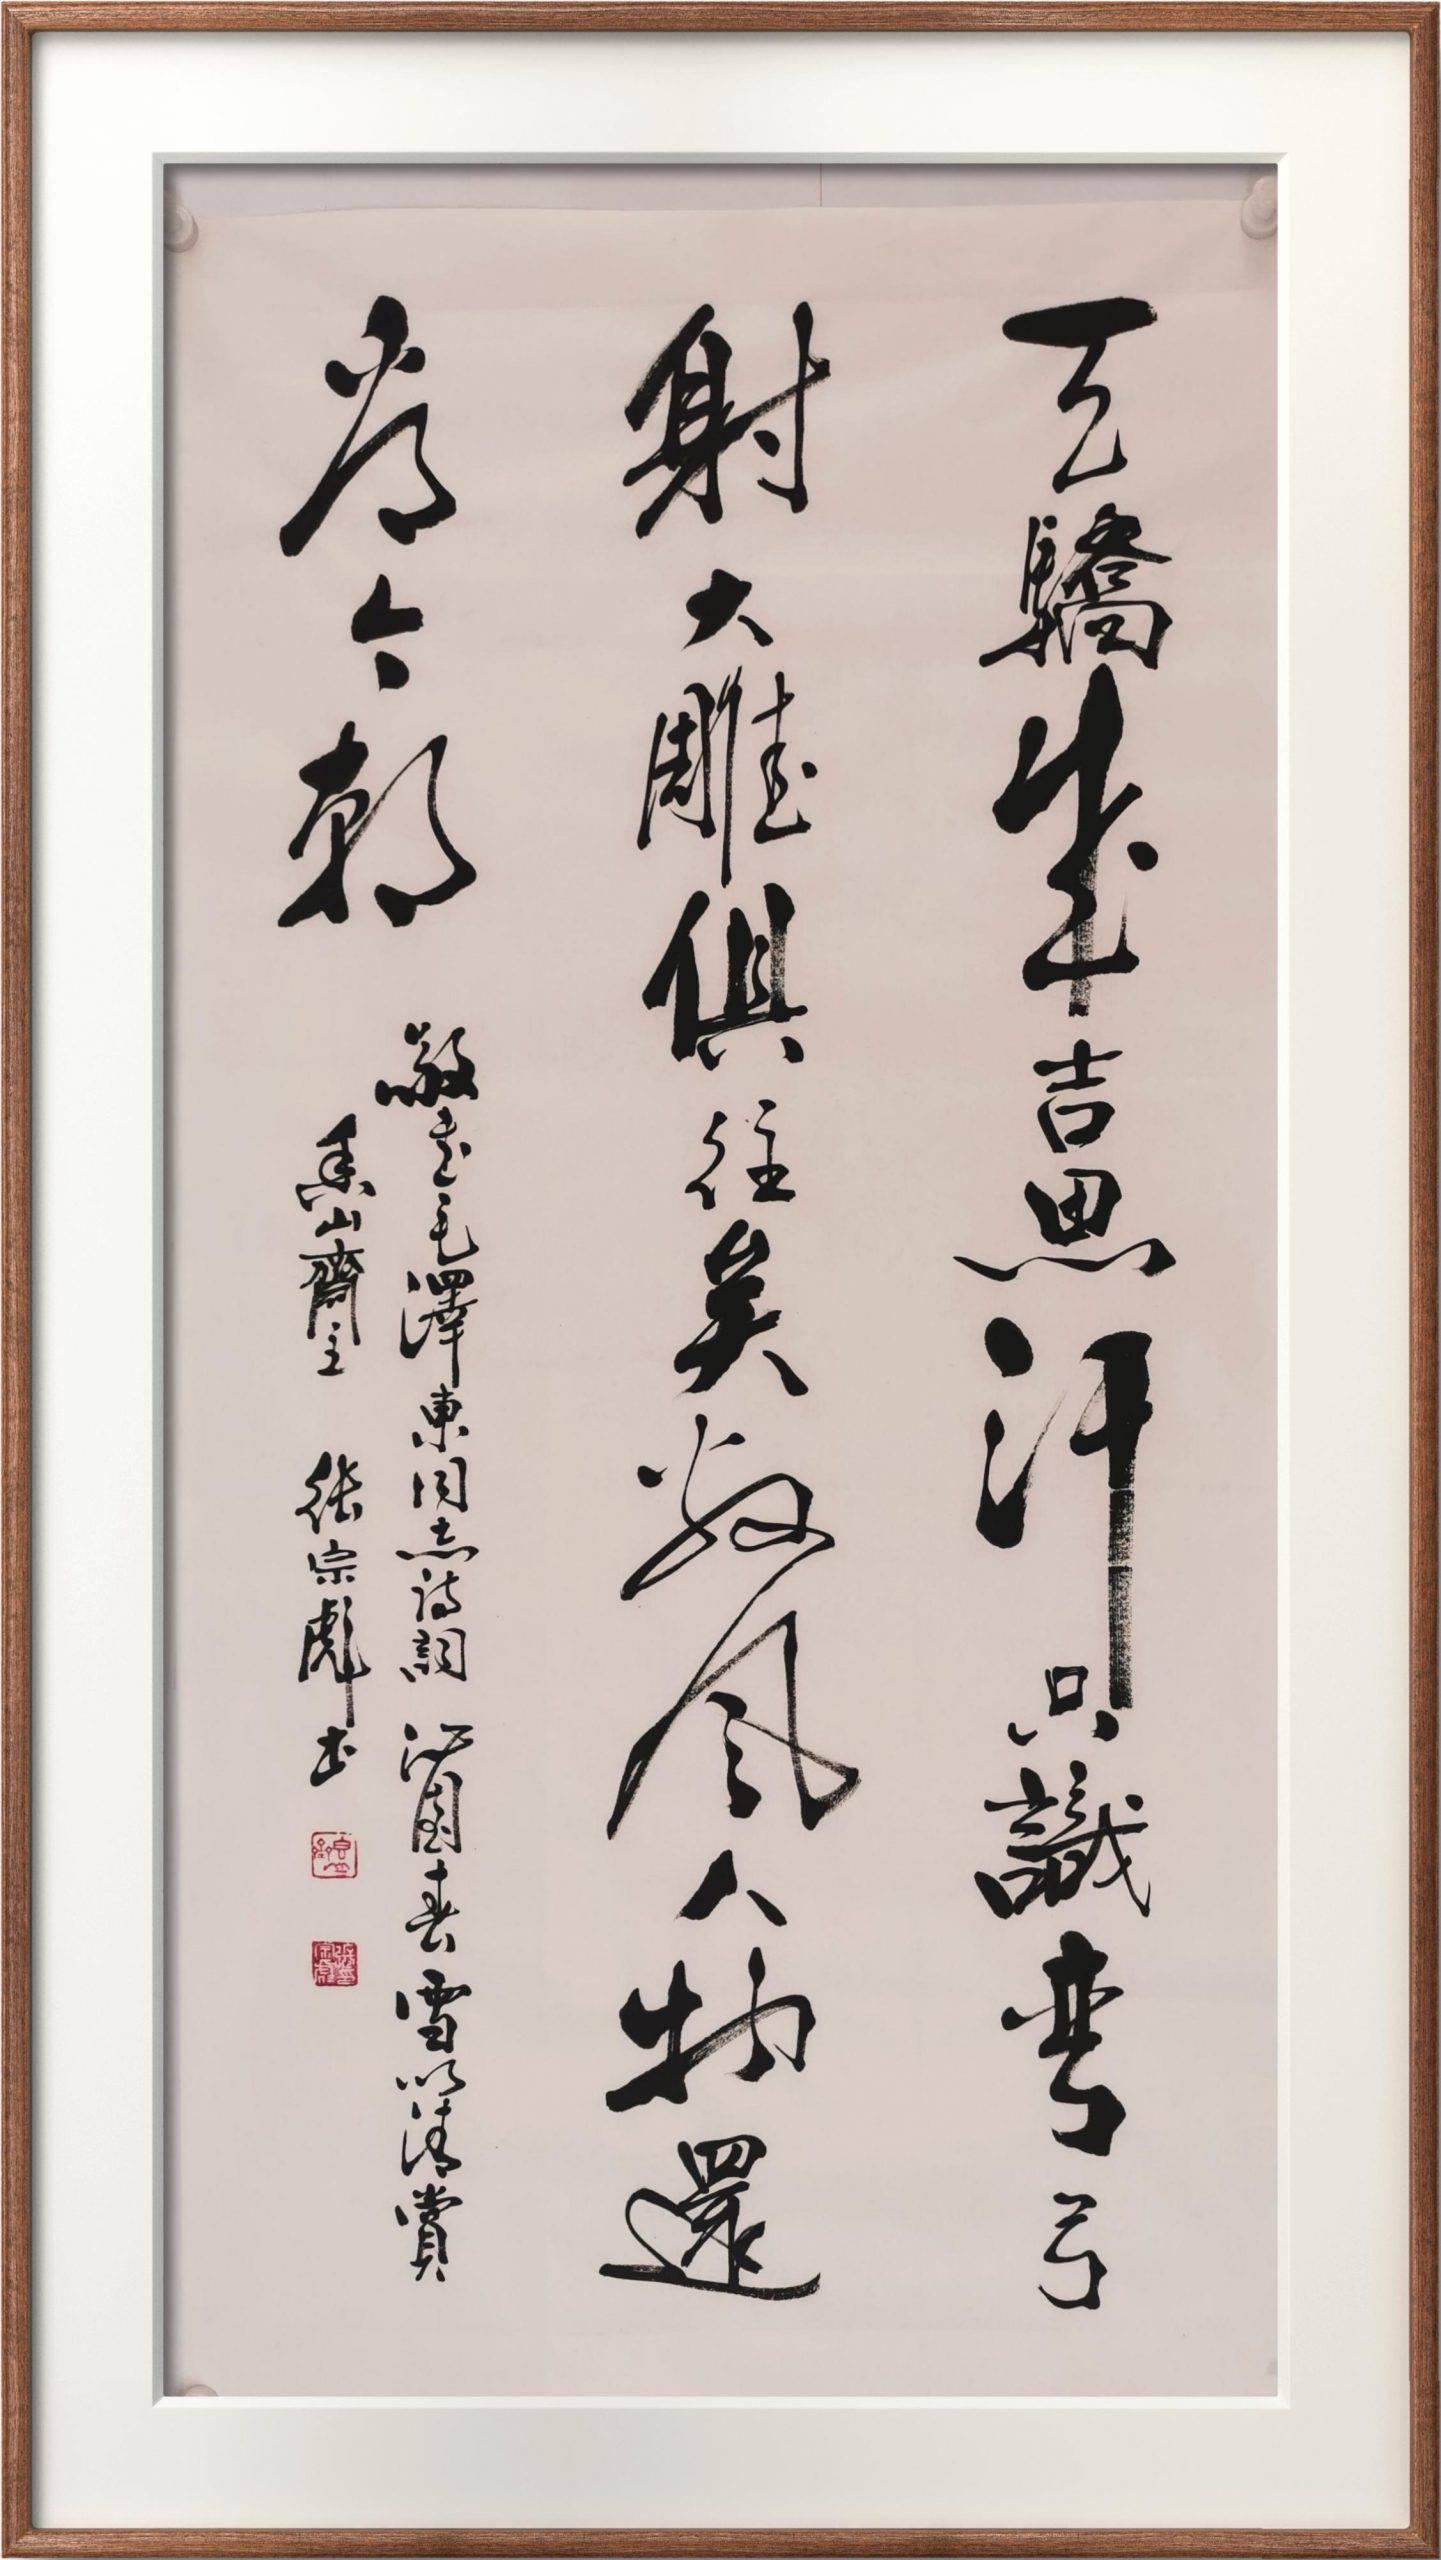 天驕成吉思汗只識弯弓
射大雕俱往矣数風人物還
看今朝
敬書毛澤東同志詩詞 沁園春雪以清賞
香山齋主 張宗彪书